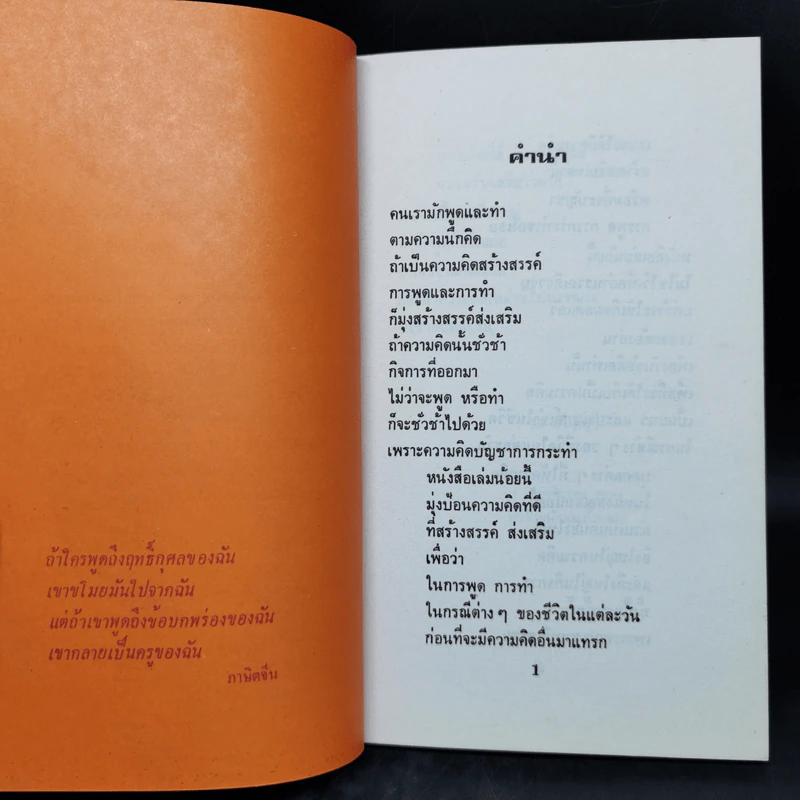 ถ้าใครพูดถึงฤทธิ์กุศลของฉัน
เขาขโมยมันไปจากฉัน
แต่ถ้าเขาพูดถึงข้อบกพร่องของฉัน
เขากลายเป็นครูของฉัน
ภาษิตจีน
คำนำ
คนเรามักพูดและทำ
ตามความนึกคิด
ถ้าเป็นความคิดสร้างสรรค์
การพูดและการทำ
ก็มุ่งสร้างสรรค์ส่งเสริม
ถ้าความคิดนั้นชั่วช้า
กิจการที่ออกมา
ไม่ว่าจะพูด หรือทำ
ก็จะชั่วช้าไปด้วย
เพราะความคิดบัญชาการกระทำ
หนังสือเล่มน้อยนี้
มุ่งป้อนความคิดที่ดี
ที่สร้างสรรค์ ส่งเสริม
เพื่อว่า
ในการพูด การทำ
ในกรณีต่างๆ ของชีวิตในแต่ละวัน
ก่อนที่จะมีความคิดอื่นมาแทรก
1